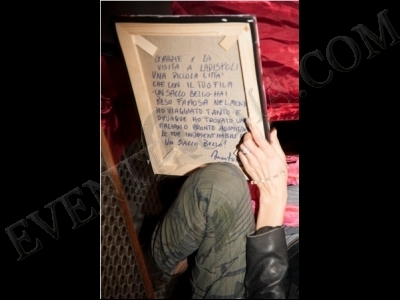 GRAZIE X LA
VISITA A LADISPOLI
UNA PICCOLA CITTA'
CHE CON IL TUO FILM
UN SACCO BELLO HAI
RESO FAMOSA NEL MONDO
HO VIAGGIATO TANTO E
OVUNQUE HO TROVATO UN
ITALIANO PRONTO A
LE TUE
UN SACCO BELLO!
EVENT .COM